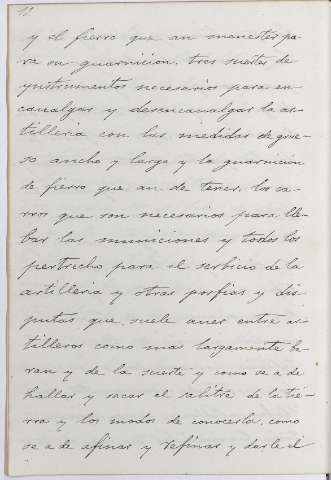 11
y el fierro que an menester pa-
ra su guarnicion. tres suertes de
ynstrumentos necesarios para en-
caualgar y desencaualgar la ar-
tilleria con las medidas de grue-
so ancho y largo y la guarnicion
de fierro que an de tener. los ca-
rros que son necesarios para lle-
bar las municiones y todos los
pertrecho para el serbicio de la
artilleria y otras porfias y dis-
putas que suele auer entre ar-
tilleros como mas largamente be-
ran y de la suerte y como se a de
hallar y sacar el salitre de la tie-
rra y los modos de conocerlo, como
se a de afinar y refinar y darle el